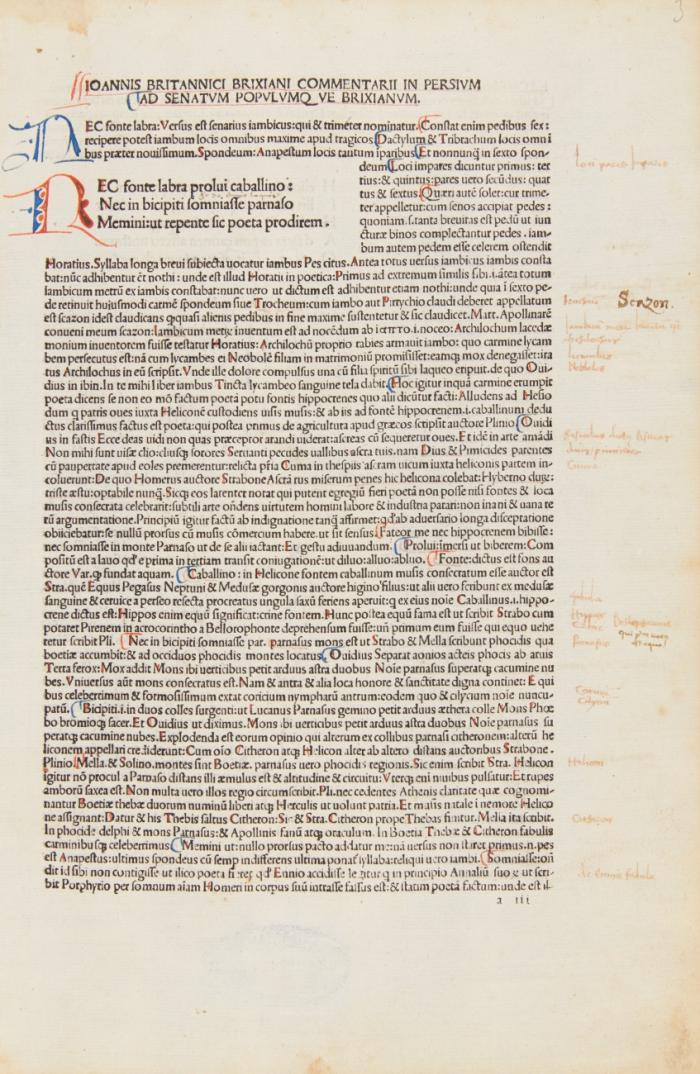 IOANNIS BRITANNICI BRIXIANI COMMENTARII IN PERSIVM
AD SENATVM POPVLVMQ VE BRIXIANVM.
NEC fonte labra: Versus est senarius iambicus: qui & trimeter nominatur. Constat enim pedibus sex:
recipere potest iambum locis omnibus maxime apud tragicos Dactylum & Tribrachum locis omni
bus præter nouissimum. Spondeum: Anapestum locis tantum iparibus Et nonnunq̃ in sexto spon-
deum Loci impares dicuntur primus: ter
tius: & quintus: pares uero secũdus: quat
tus & sextus. Quæri autẽ solet: cur trime-
ter appelletur: cum senos accipiat pedes:
quoniam .s. tanta breuitas est pedũ ut iun
cturæ binos complectantur pedes. iam-
bum autem pedem esse celerem ostendit
REC fonte labra prolui caballino:
Nec in bicipiti somniasse parnaso
Memini: ut repente sic poeta prodirem.
Horatius. Syllaba longa breui subiecta uocatur iambus Pes citus. Antea totus uersus iambicus iambis consta
bat: nũc adhibentur & nothi: unde est illud Horatii in poetica: Primus ad extremum similis sibi .i. ãtea totum
iambicum metrũ ex iambis constabat: nunc uero ut dictum est adhibentur etiam nothi: unde quia i sexto pe-
de retinuit huiusmodi carmẽ spondeum siue Trocheum: cum iambo aut Pirrychio claudi deberet appellatum
est scazon idest claudicans
conueni meum scazon: Iambicum metrum inuentum est ad nocẽdum ab ιαπτο .i. noceo: Archilochum lacedæ
monium inuentorem fuisse testatur Horatius: Archilochũ proprio rabies armauit iambo: quo carmine lycam
bem persecutus est: nã cum lycambes ei Neobolẽ filiam in matrimoniũ promisisset: eamq; mox denegasset: ira
tus Archilochus in eũ scripsit. Vnde ille dolore compulsus una cũ filia spiritũ sibi laqueo eripuit. de quo Oui-
dius in ibin. In te mihi liber iambus Tincta lycambeo sanguine tela dabit. Hoc igitur inquã carmine erumpit
poeta dicens se non eo mõ factum poetã potu fontis hippocrenes quo alii dicũtur facti: Alludens ad Hesio
dum q patris oues iuxta Heliconẽ custodiens uisis musis: & ab iis ad fontẽ hippocrenem .i. caballinum dedu
ctus clarissimus factus est poeta: qui postea primus de agricultura apud græcos scripsit auctore Plinio Ouidi
us in fastis Ecce deas uidi non quas præceptor arandi uiderat: ascreas cũ sequeretur oues. Et idẽ in arte amãdi
Non mihi sunt uisæ clio: cliusq; sorores Seruanti pecudes uallibus ascra tuis. nam Dius & Pimicides parentes
cũ paupertate apud eoles premerentur: relicta pria Cuma in thespiis ascram uicum iuxta heliconis partem in-
coluerunt: De quo Homerus auctore Strabone Ascrã rus miserum penes hic helicona colebat: Hyberno duge:
triste æstu: optabile nunq̃. Sicq; eos latenter notat qui putent egregiũ fieri poetã non posse nisi fontes & loca
musis consecrata celebrarit: subtili arte ondens uirtutem homini labore & industria patari: non inani & uana te
rũ argumentatione. Principiũ igitur factũ ab indignatione tanq̃ affirmet: qd ab aduersario longa disceptatione
obiiciebatur: se nullũ prorsus cũ musis cõmercium habere. ut sit sensus. Fateor me nec hippocrenem bibisse:
nec somniasse in monte Parnaso ut de se alii iactant: Et gestu adiuuandum. Prolui: imersi ut biberem: Com
positũ est a lauo qd e prima in tertiam transit coniugationẽ: ut diluo: alluo: abluo. Fonte: dictus est fons au
ctore Var. q fundat aquam. Caballino: in Helicone fontem caballinum musis consecratum esse auctor est
Stra. quẽ Equus Pegasus Neptuni & Medusæ gorgonis auctore higino filius: ut alii uero scribunt ex medusæ
sanguine & ceruice a perseo resecta procreatus ungula saxũ feriens aperuit: q ex eius noie Caballinus .i. hippo-
crene dictus est: Hippos enim equũ significat: crine fontem. Hunc postea equũ fama est ut scribit Strabo cum
potaret Pirenem in acrocorintho a Bellorophonte deprehensum fuisse: uñ primum eum fuisse qui equo uehe
retur scribit Pli. Nec in bicipiti somniasse par. parnasus mons est ut Strabo & Mella scribunt phocidis qua
boetiæ accumbit: & ad occiduos phocidis montes locatus Ouidius Separat aonios acteis phocis ab aruis
Terra ferox: Mox addit Mons ibi uerticibus petit arduus astra duobus Noie parnasus superatq; cacumine nu
bes. Vniuersus aũt mons consecratus est. Nam & antra & alia loca honore & sanctitate digna continet: E qui
bus celebertimum & formosissimum extat coricium nympharũ antrum: eodem quo & cilycium noie nuncu-
patũ. Bicipiti .i. in duos colles surgenti: ut Lucanus Parnasus gemino petit arduus æthera colle Mons Phœ
bo bromioq; sacer. Et Ouidius ut diximus. Mons ibi uerticibus petit arduus astra duobus Noie parnasus su
peratq; cacumine nubes. Explodenda est eorum opinio qui alterum ex collibus parnasi citheronem: alterũ he
liconem appellari crediderunt: Cum oio Citheron atq; Helicon alter ab altero distans auctoribus Strabone.
Plinio Mella. & Solino. montes sint Boetiæ. parnasus uero phocidis regionis. Sic enim scribit Stra. Helicon
igitur nõ procul a Parnaso distans illi æmulus est & altitudine & circuitu: Vterq; eni niuibus pulsatur: Et rupes
amborũ saxea est. Non multa uero illos regio circumscribit. Pli. nec cedentes Athenis claritate quæ cognomi-
nantur Boetiæ thebæ duorum numinũ liberi atq; Herculis ut uolunt patria. Et musis natale i nemore Helico
ne assignant: Datur & his Thebis saltus Citheron: Sic & Stra. Citheron prope Thebas finitur. Mella ita scribit.
In phocide delphi & mons Parnasus: & Apollinis fanũ atq; oraculum. In Boetia Thebæ & Citheron fabulis
carminibusq; celeberrimus. Memini ut: nullo prorsus pacto addatur me: nã uersus non staret primus. n. pes
est Anapestus: ultimus spondeus cũ semp indifferens ultima ponat syllaba: reliqui uero iambi. Somniasse: oñ
dit id sibi non contigisse ut ilico poeta fieret qd Ennio accidisse legitur q in principio Annaliũ suoꝝ ut scri-
bit Porphyrio per somnum aiam Homeri in corpus suũ intrasse fassus est: & statim poetã factum: unde est il-
a iii
Scazon.
Helicon
3